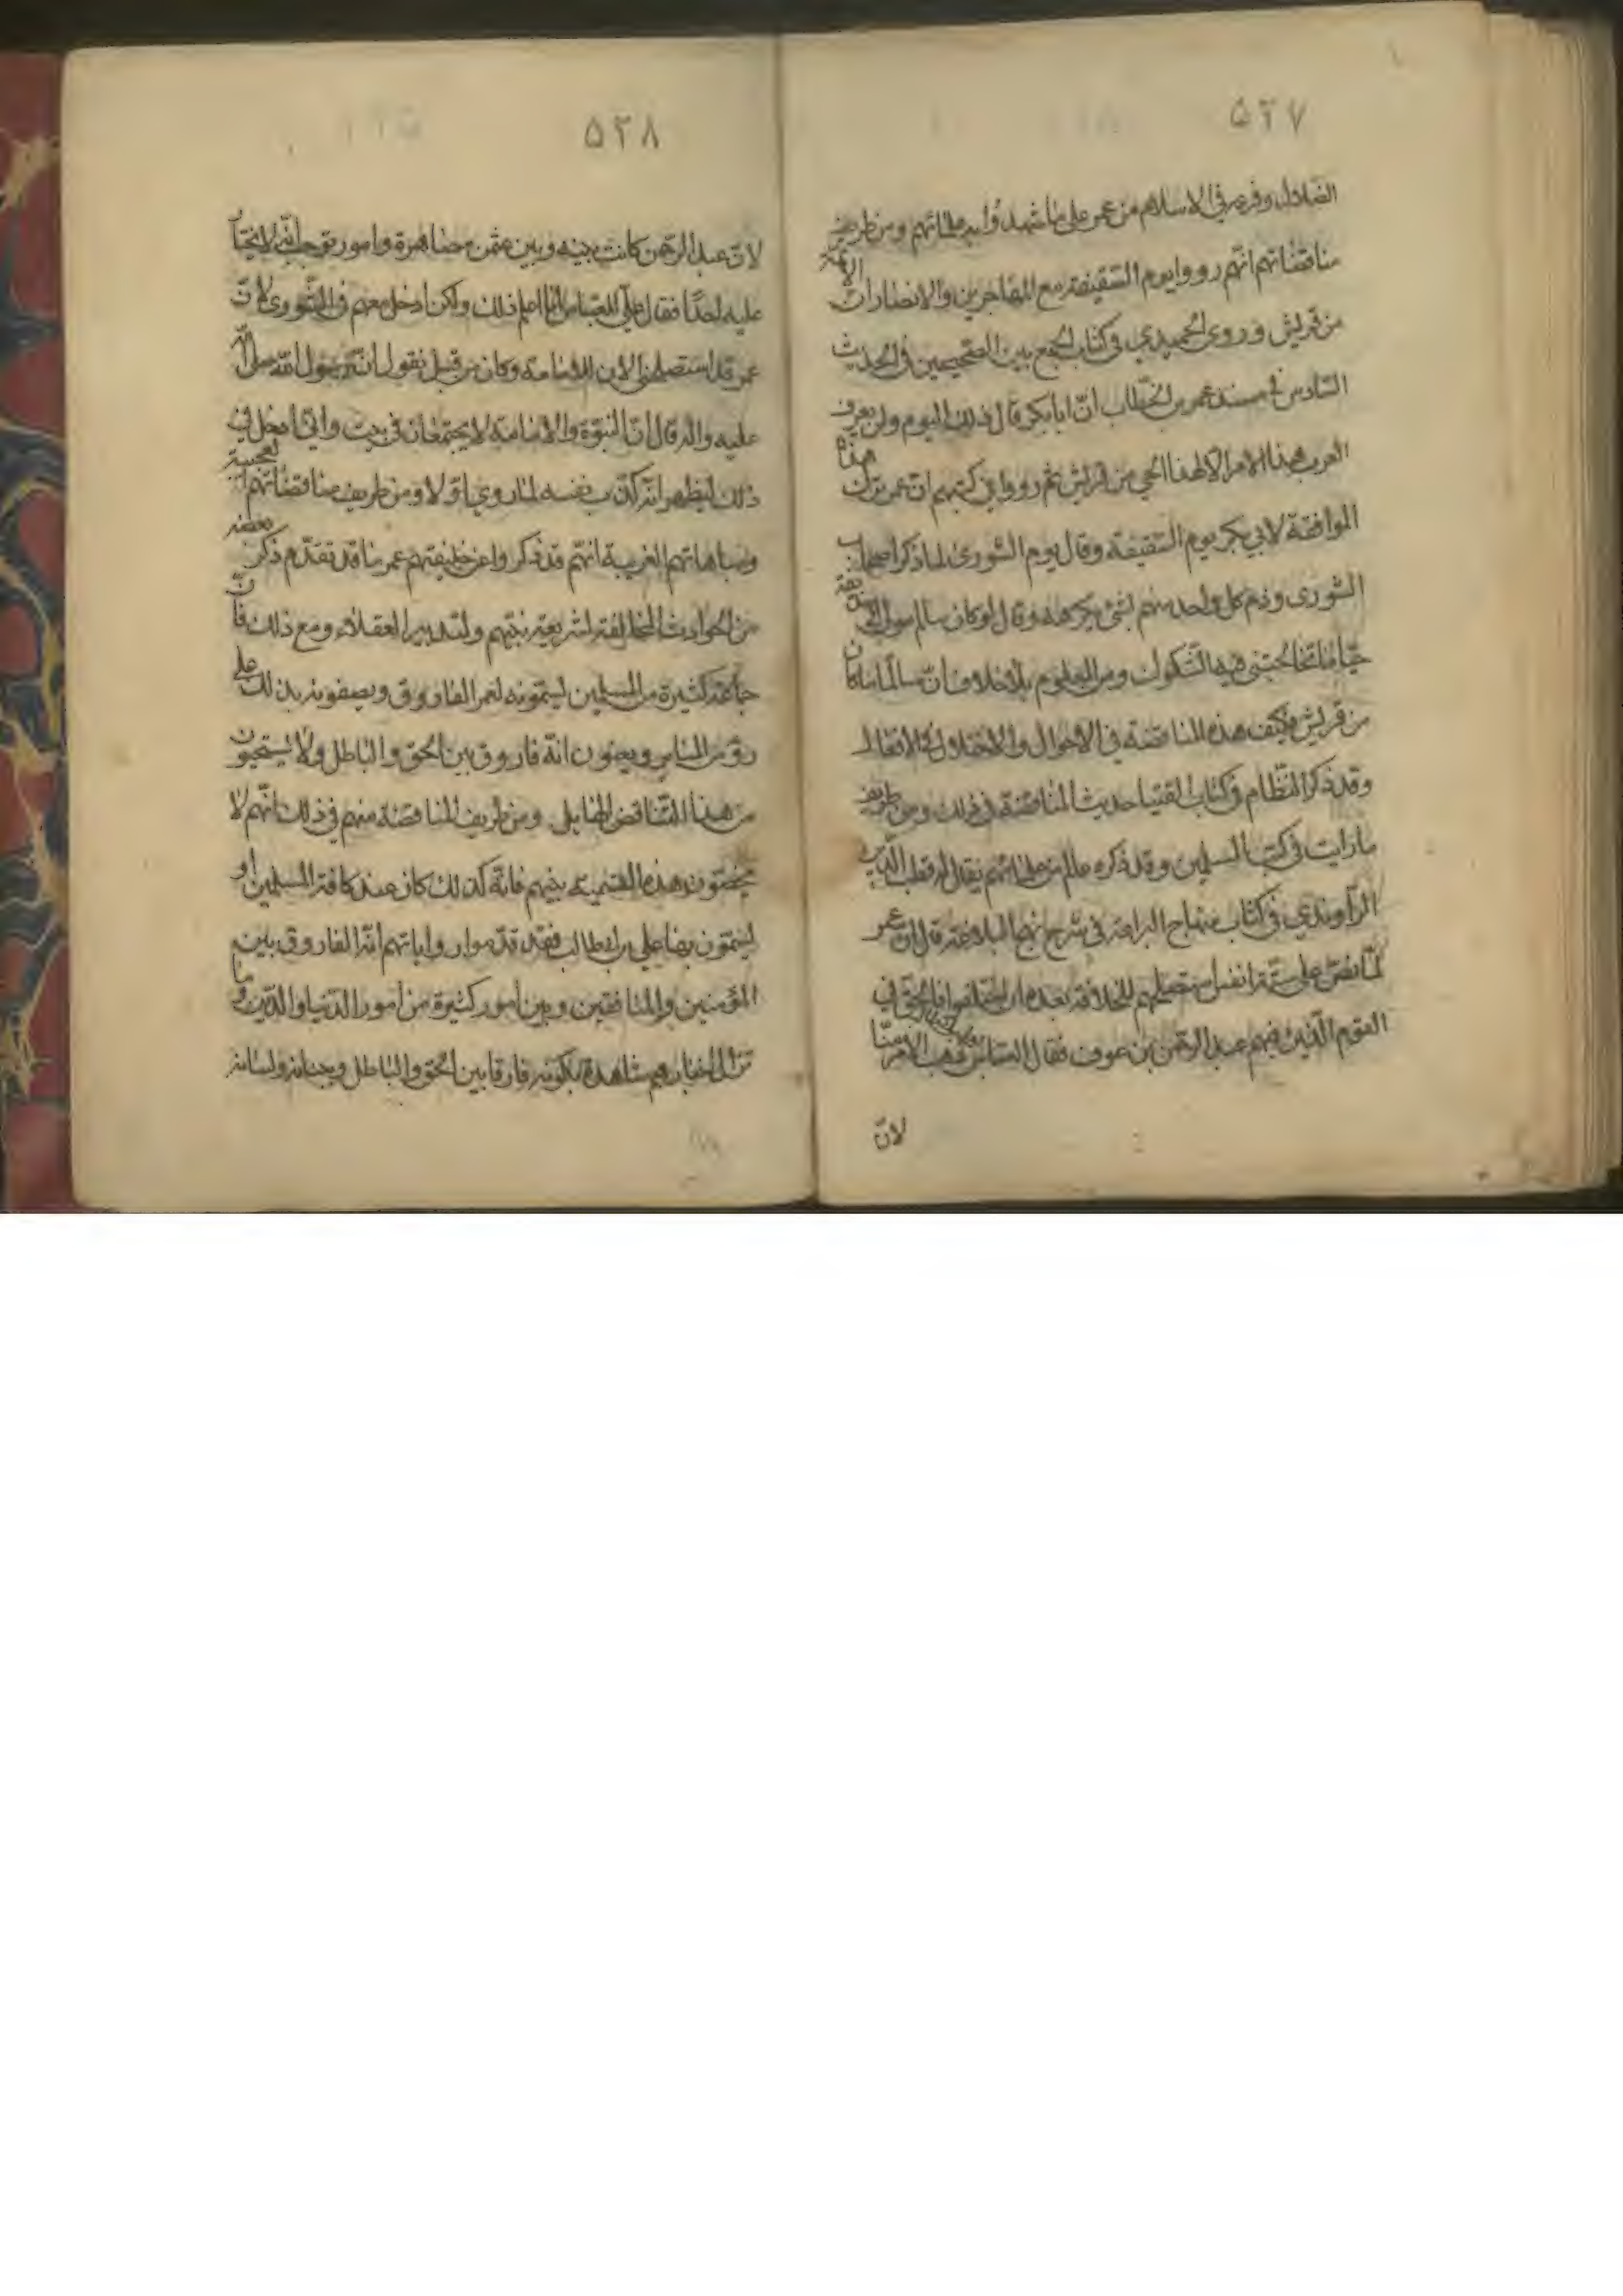 ٥٢٧
الضلال وفرعه في الاسلام من عمر على ما شهد وا به علمائهم ومن طريف
مناقضاتهم انهم رووا يوم السقيفة مع المهاجرين والانصار ان الائمة
من قريش وروى الحميدي في كتاب الجمع بين الصحيحين في الحديث
السادس من مسند عمر بن الخطاب ان ابا بكر قال ذلك اليوم ولن يعرف
العرب هذا الامر الا لهذا الحي من قريش ثم رووا في كتبهم ان عمر ترك هذا
الموافقة لابي بكر يوم السقيفة وقال يوم الشورى لما ذكر اصحاب
الشورى وذم كل واحد منهم بشئ يكرهه وقال لو كان سالم مولى ابي حذيفة
حيا ما تخالجتني فيه الشكوك ومن المعلوم بلا خلاف ان سالما ما كان
من قريش فكيف هذه المناقضة في الاحوال والاختلال في الافعال
وقد ذكر النظام في كتاب الفتيا حديث المناقضة في ذلك ومن طريف
ما رايت في كتب المسلمين وقد ذكره عالم من علمائهم يقال له قطب الدين
الراوندي في كتاب منهاج البراعة في شرح نهج البلاغة قال ان عمر
لما نص على ستة انفس استصلحهم للخلافة بعده ان اختلفوا فالحق في
القوم الذين فيهم عبد الرحمن بن عوف فقال العباس ذهب الامر منا
لان
٥٢٨
لان عبد الرحمن كانت بينه وبين عثمن مصاهرة وامور توجب انه لا يختار
عليه احدا فقال علي للعباس انا اعلم ذلك ولكن ادخل معهم في الشورى لان
عمر قد استصلحني الان للامامة وكان من قبل يقول ان رسول الله صلى الله
عليه واله قال ان النبوة والامامة لا يجتمعان في بيت واني ادخل في
ذلك ليظهر انه كذب نفسه لما روي اولا ومن طريف مناقضاتهم العجيبة
ومباهاتهم الغريبة انهم قد ذكروا عن خليفتهم عمر ما قد تقدم ذكر بعضه
من الحوادث المخالفة لشريعة نبيهم ولتدبير العقلاء ومع ذلك فان
جماعة كثيرة من المسلمين يسمونه لعمر الفاروق ويصفونه بذلك على
رؤس المنابر ويعنون انه فاروق بين الحق والباطل ولا يستحيون
من هذا التناقض الهايل ومن طريف المناقضة منهم في ذلك انهم لا
يخصون هذه التسمية بنبيهم فانه كذلك كان عند كافة المسلمين او
يسمون بها علي بن ابي طالب فقد قدموا رواياتهم انه الفاروق بين
المؤمنين والمنافقين وبين امور كثيرة من امور الدنيا والدين وما
تزال اخبارهم شاهدة بكونه فارقا بين الحق والباطل وبجنانه ولسانه